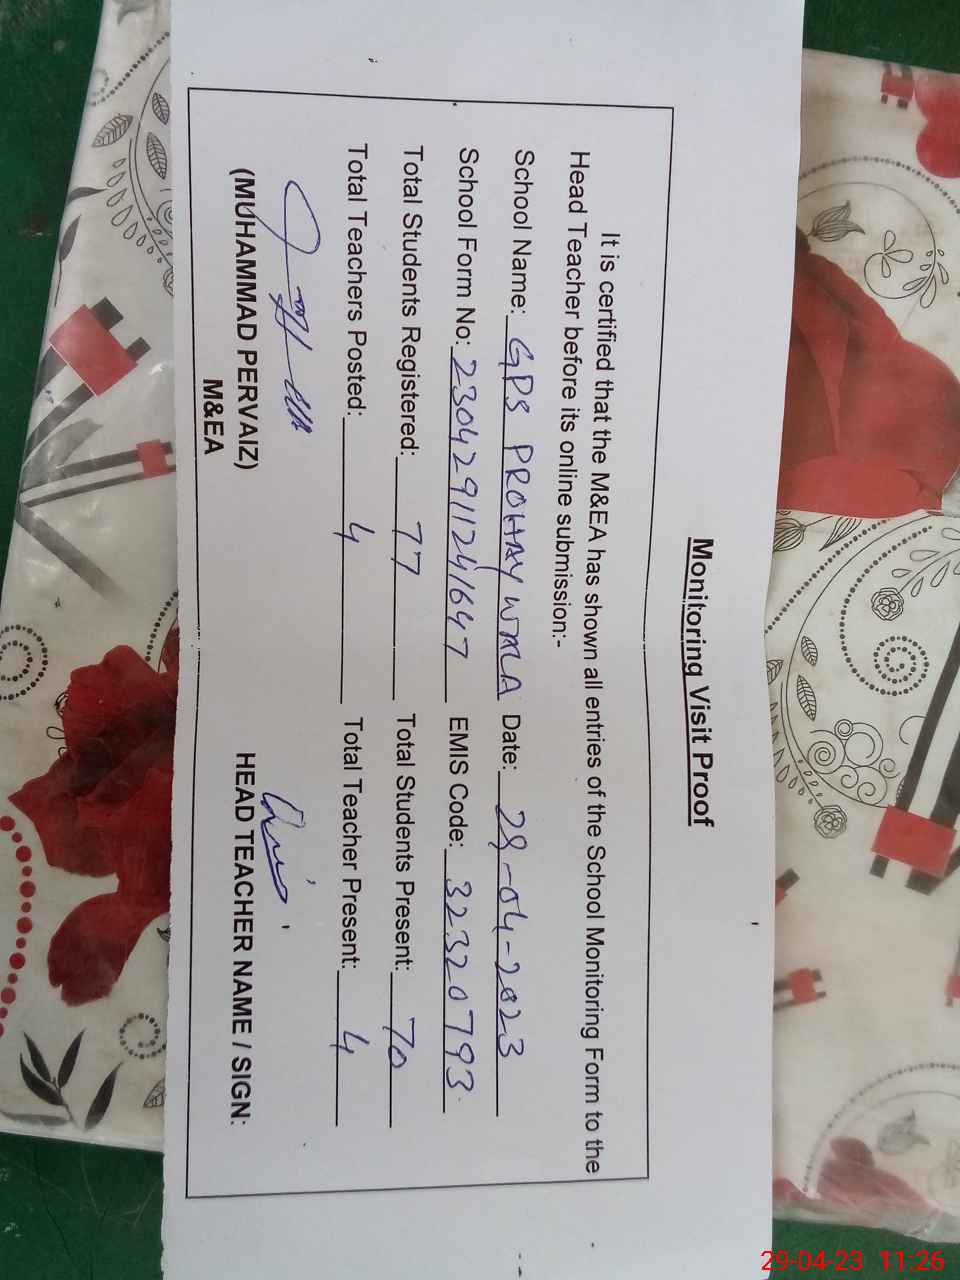 Monitoring Visit Proof
It is certified that the M&EA has shown all entries of the School Monitoring Form to the
Head Teacher before its online submission:-
School Name: GPS PROHAY WALA Date: 28-04-2023
School Form No: 23042911241647 EMIS Code: 32320793
Total Students Registered: 77 Total Students Present: 70
Total Teachers Posted: 4 Total Teacher Present: 4
(MUHAMMAD PERVAIZ) HEAD TEACHER NAME / SIGN:
M&EA
29-04-23 11:26